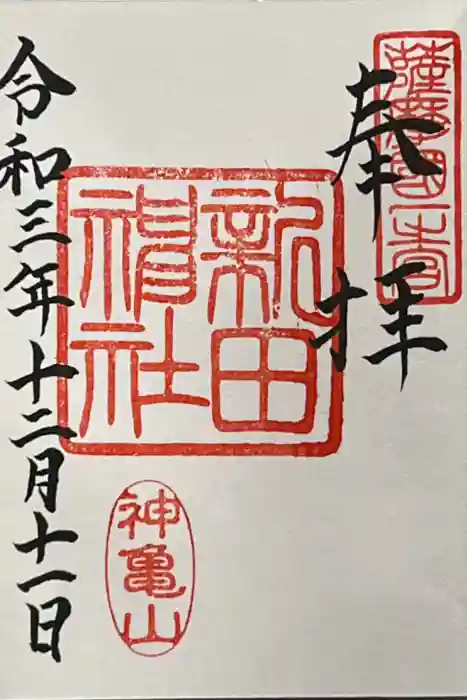 薩摩國一之宮
奉拝
新田
神社
神亀山
令和三年十二月十一日